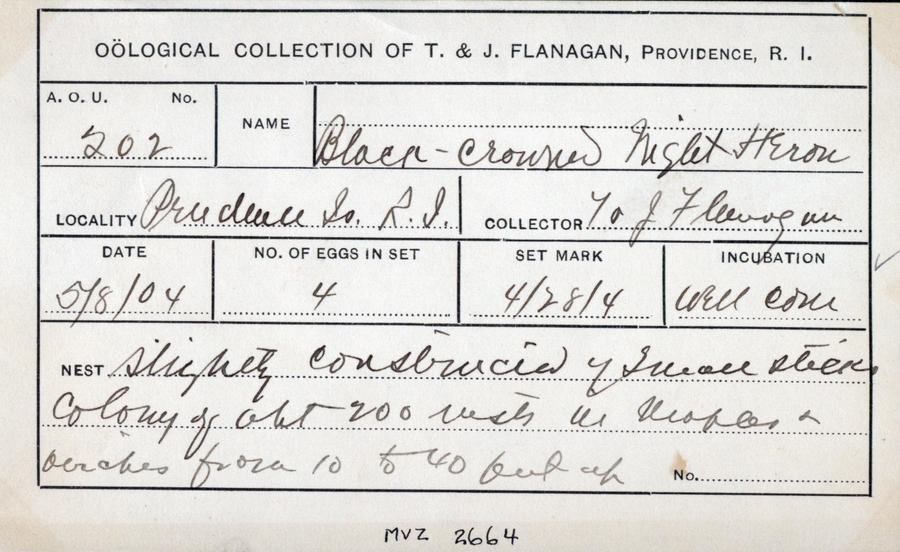 OÖLOGICAL COLLECTION OF T. & J. FLANAGAN, PROVIDENCE, R. I.
A. O. U. No.
202
NAME Black-crowned Night Heron
LOCALITY Prudence Is. R. I. COLLECTOR J Flanagan
DATE NO. OF EGGS IN SET SET MARK INCUBATION
5/8/04 4 4/28/4 Well com
NEST slightly constructed of small sticks
Colony of abt 200 nests in Maples &
birches from 10 to 40 feet up No.
MVZ 2664